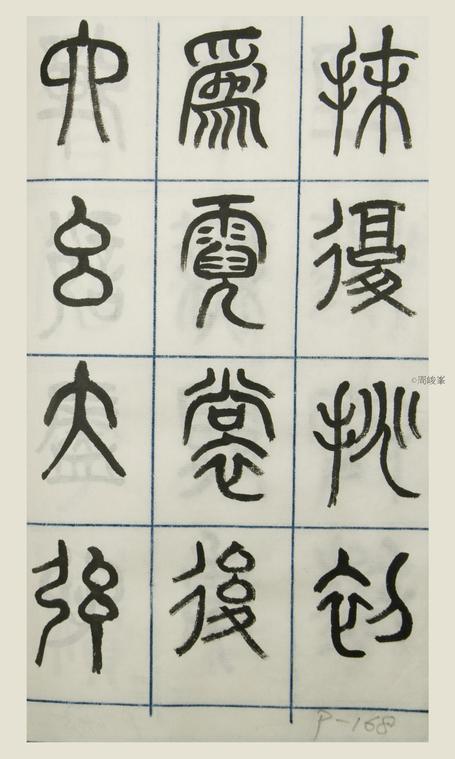 抹復挑初
爲霓裳後
六幺大弦
©周峻峯
P-168